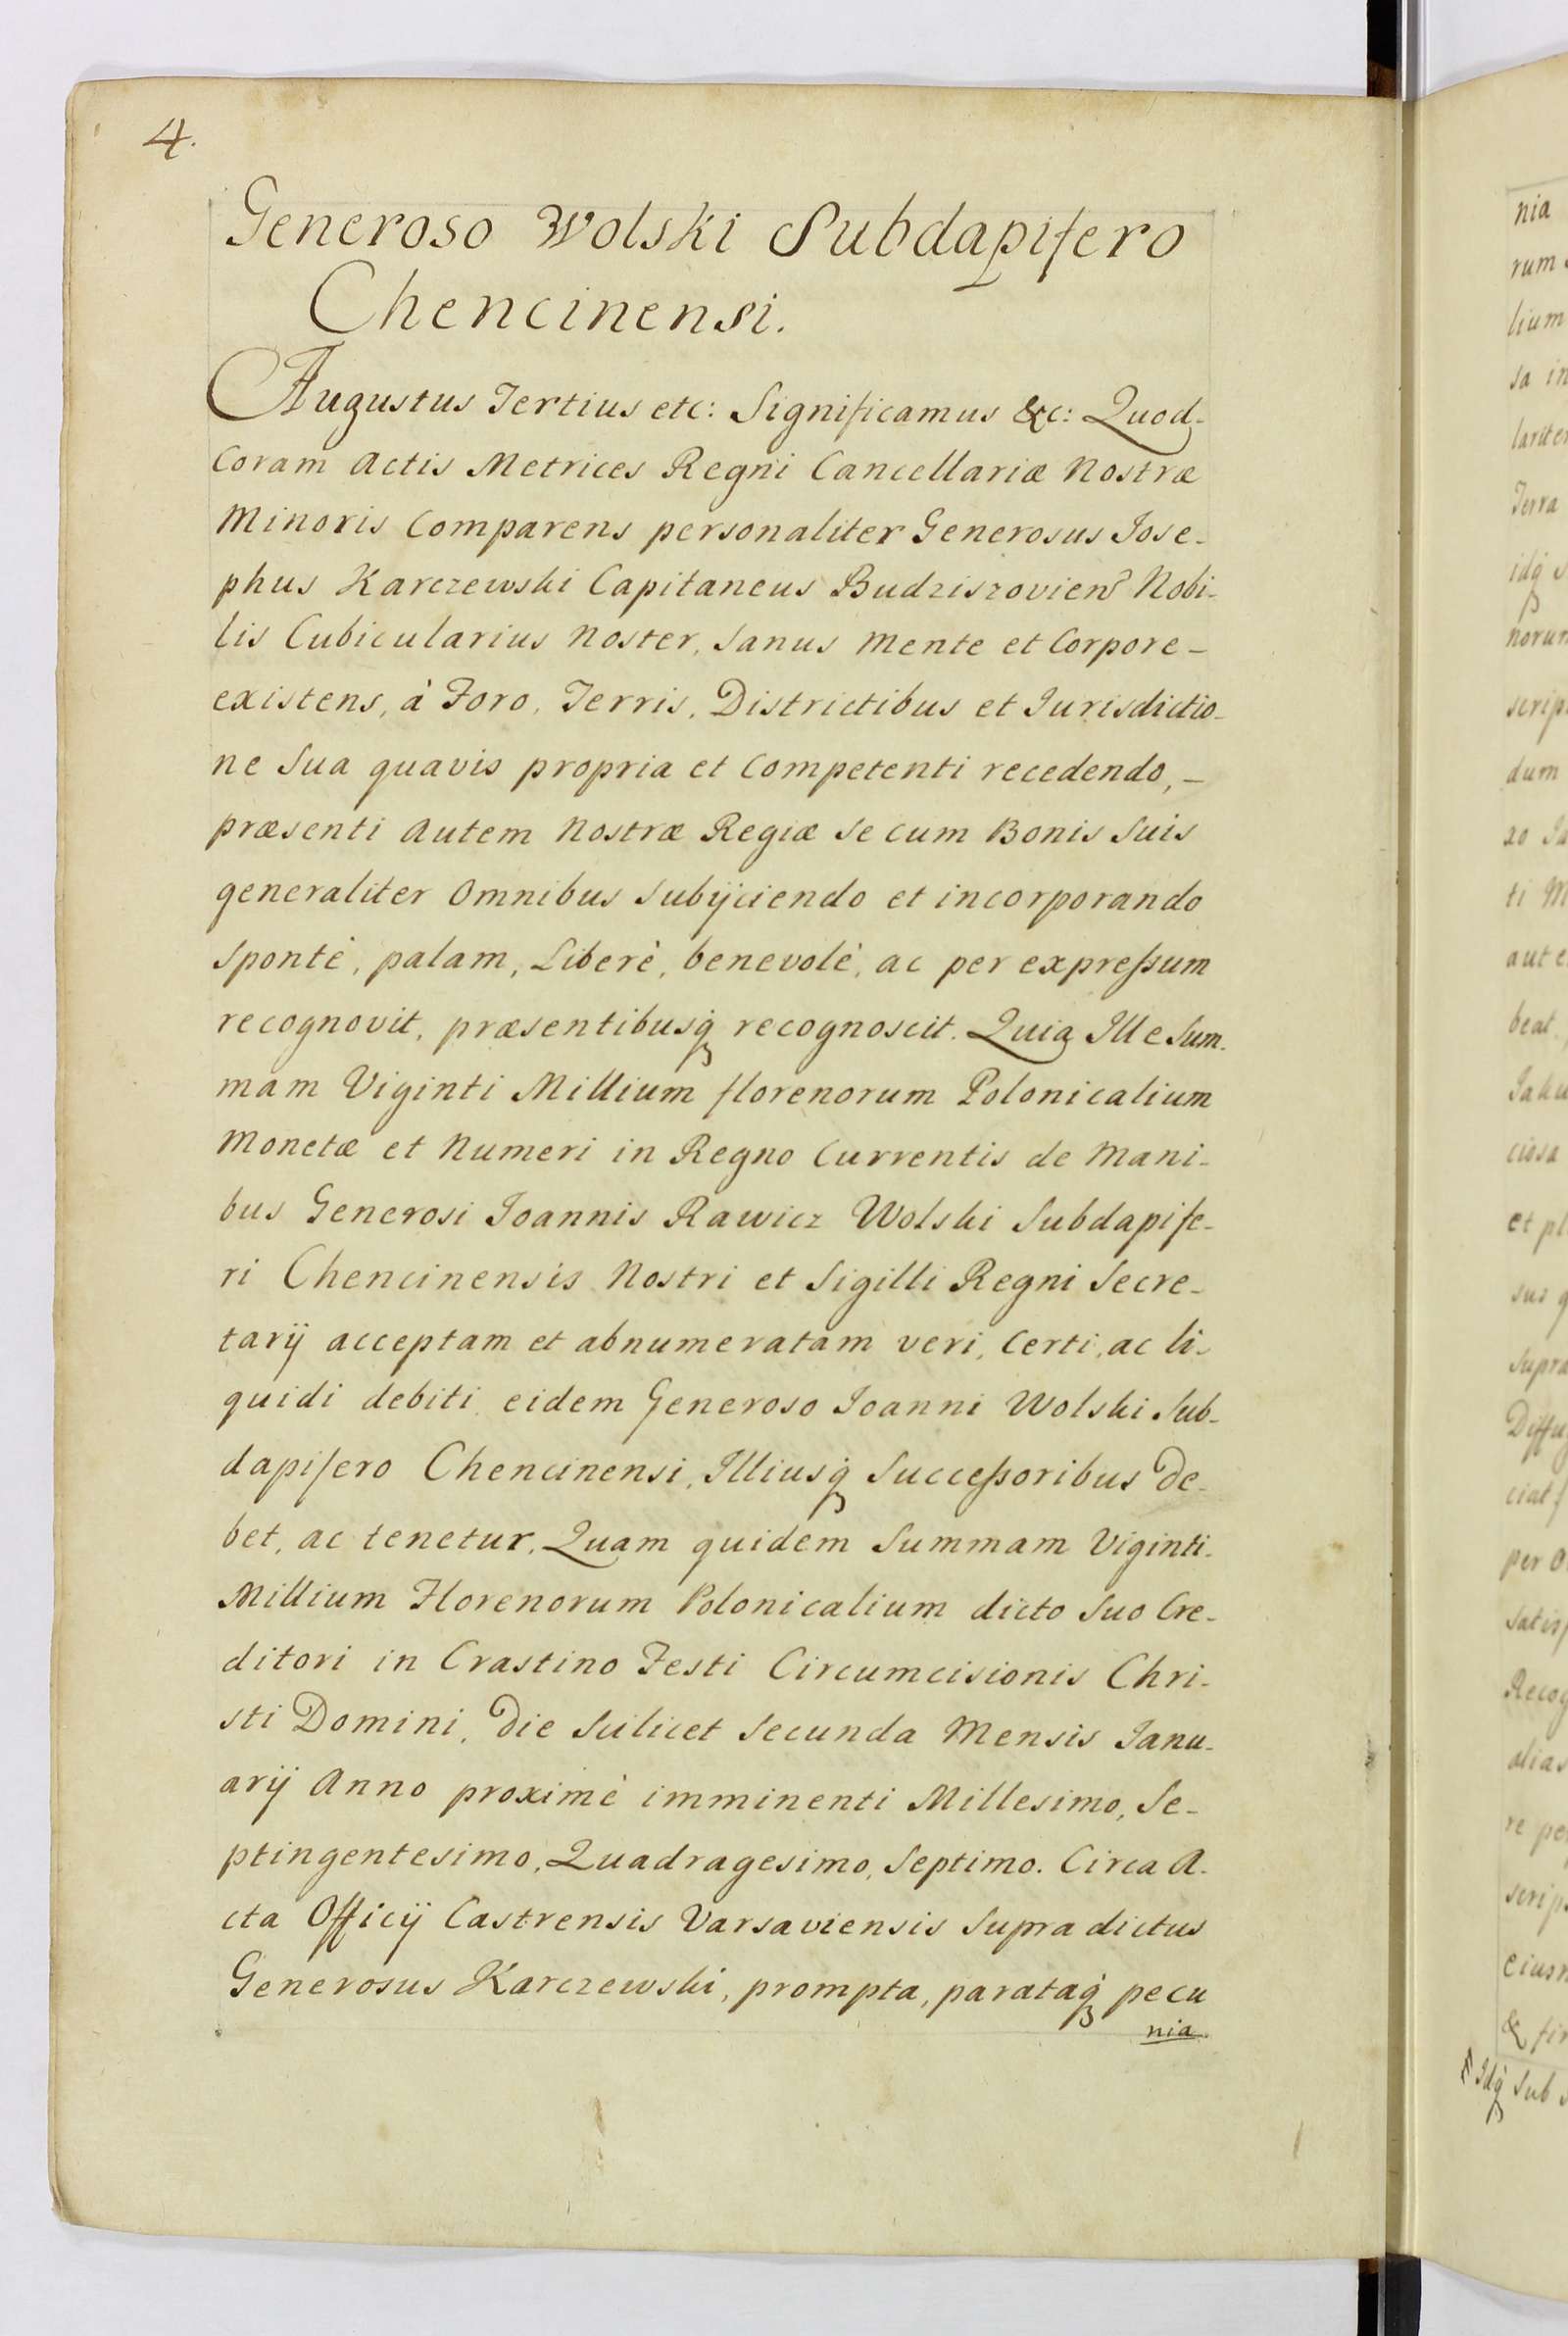 4.
Generoso Wolski Subdapifero
Chencinensi.
Augustus Tertius etc: Significamus &c: Quod-
coram Actis Metrices Regni Cancellariæ Nostræ
Minoris Comparens personaliter Generosus Jose-
phus Karczewski Capitaneus Budziszovien Nobi-
lis Cubicularius Noster, Sanus Mente et Corpore-
existens, à Foro, Terris, Districtibus et Jurisdictio-
ne Sua quavis propria et Competenti recedendo,-
præsenti Autem Nostræ Regiæ Se cum Bonis Suis
generaliter Omnibus Subijciendo et incorporando
Spontè, palam, Liberè, benevolè, ac per expressum
recognovit, præsentibusq; recognoscit. Quia Ille Sum-
mam Viginti Millium florenorum Polonicalium
Monetæ et Numeri in Regno Currentis de Mani-
bus Generosi Joannis Rawicz Wolski Subdapife-
ri Chencinensis Nostri et Sigilli Regni Secre-
tarij acceptam et abnumeratam veri, Certi, ac li-
quidi debiti eidem Generoso Joanni Wolski Sub-
dapifero Chencinensi, Illiusq; Successoribus De-
bet, ac tenetur, Quam quidem Summam Viginti-
Millium Florenorum Polonicalium dicto Suo Cre-
ditori in Crastino Festi Circumcisionis Chri-
sti Domini, Die Scilicet Secunda Mensis Janu-
arij Anno proximè imminenti Millesimo, Se-
ptingentesimo, Quadragesimo, Septimo. Circa A-
cta Officij Castrensis Varsaviensis Supra dictus
Generosus Karczewski, prompta, parataq; pecu
nia
nia
rum
lium
sa in
Terra
idq;
dum
ti
beat
et pl
per
& fir
Idq; Sub